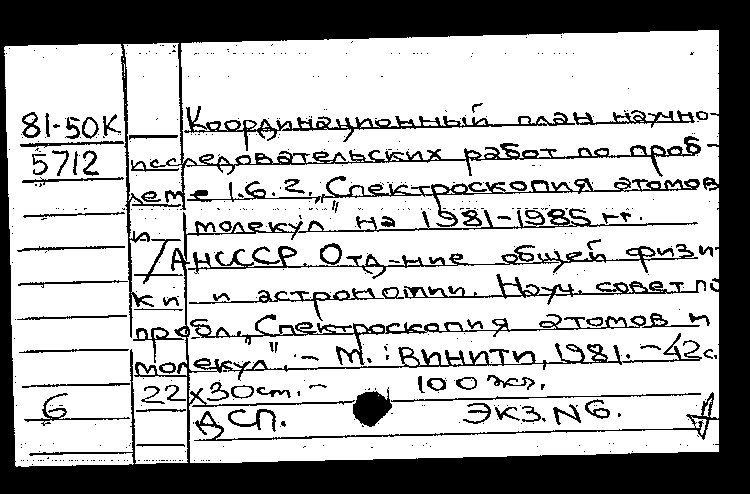 81-50К Координационный план научно-
5712 исследовательских работ по проб-
леме 1.6.2. „Спектроскопия атомов
и молекул" на 1981-1985 гг.
/АНСССР. Отд-ние общей физи-
ки и астрономии. Науч. совет по
пробл. „Спектроскопия атомов и
молекул". - М.: ВИНИТИ, 1981. - 42 с.
22х30см. - 100 экз.
6 ДСП. ЭКЗ. N6.